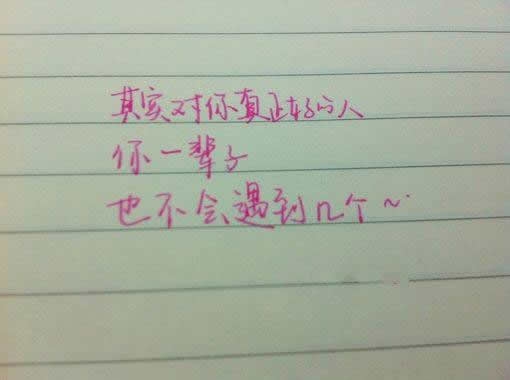 其实对你真正好的人
你一辈子
也不会遇到几个~